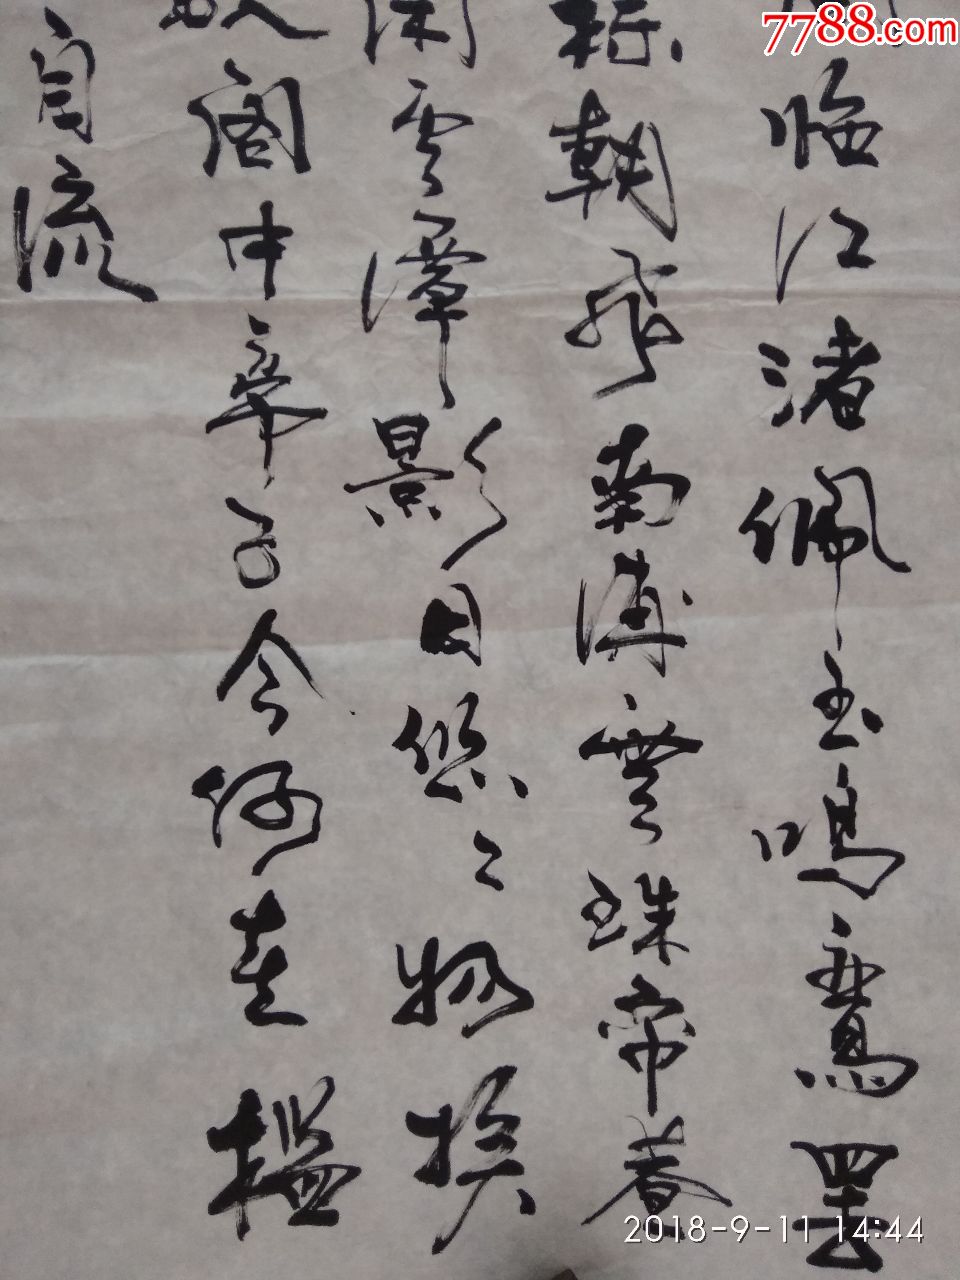 7788.com
临江渚佩玉鸣鸾罢
栋朝飛南浦雲珠帘暮
闲雲潭影日悠々物换
阁中帝子今何在槛
自流
2018-9-11 14:44